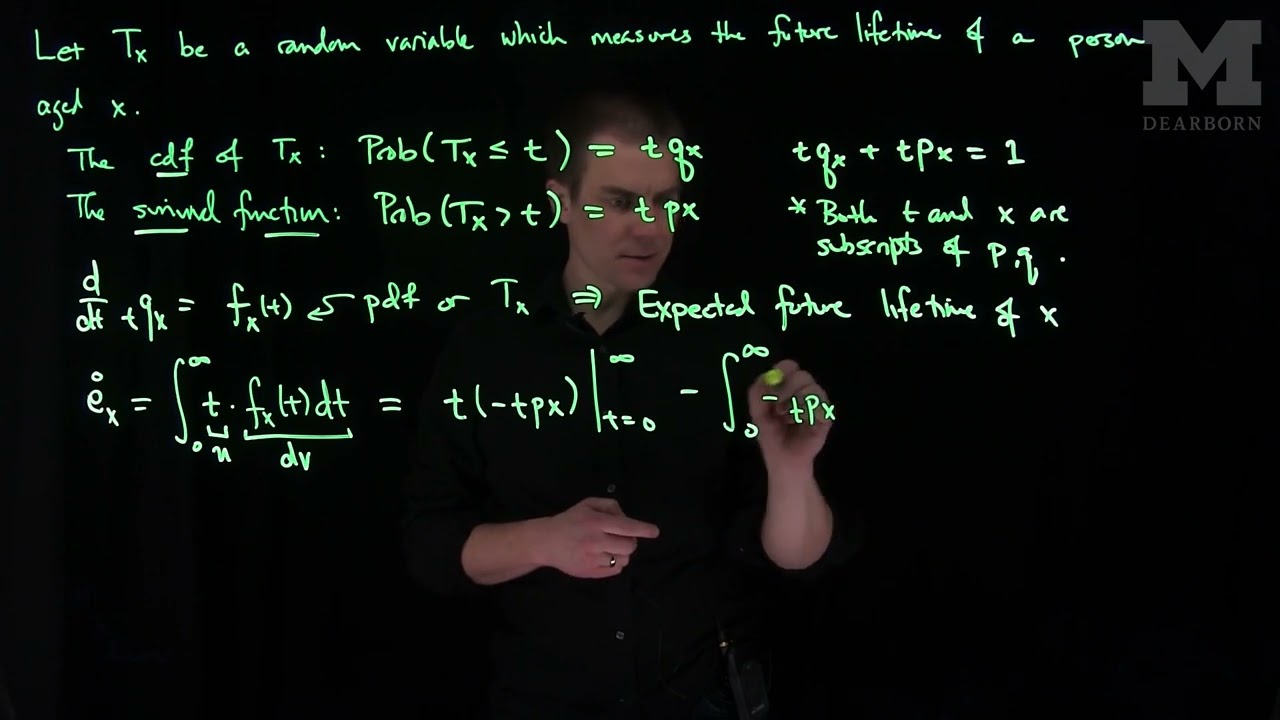 Let Tx be a random variable which measures the future lifetime of a person
aged x.
The cdf of Tx : Prob(Tx ≤ t) = tqx
tqx + tpx = 1
The survival function: Prob(Tx > t) = tpx
* Both t and x are
subscripts of p,q.
d/dt tqx = fx(t) ← pdf or Tx ⇒ Expected future lifetime of x
e̊x = ∫₀^∞ t · fx(t)dt = t(-tpx)|_{t=0}^∞ - ∫₀^∞ - tpx
u dv
M
DEARBORN